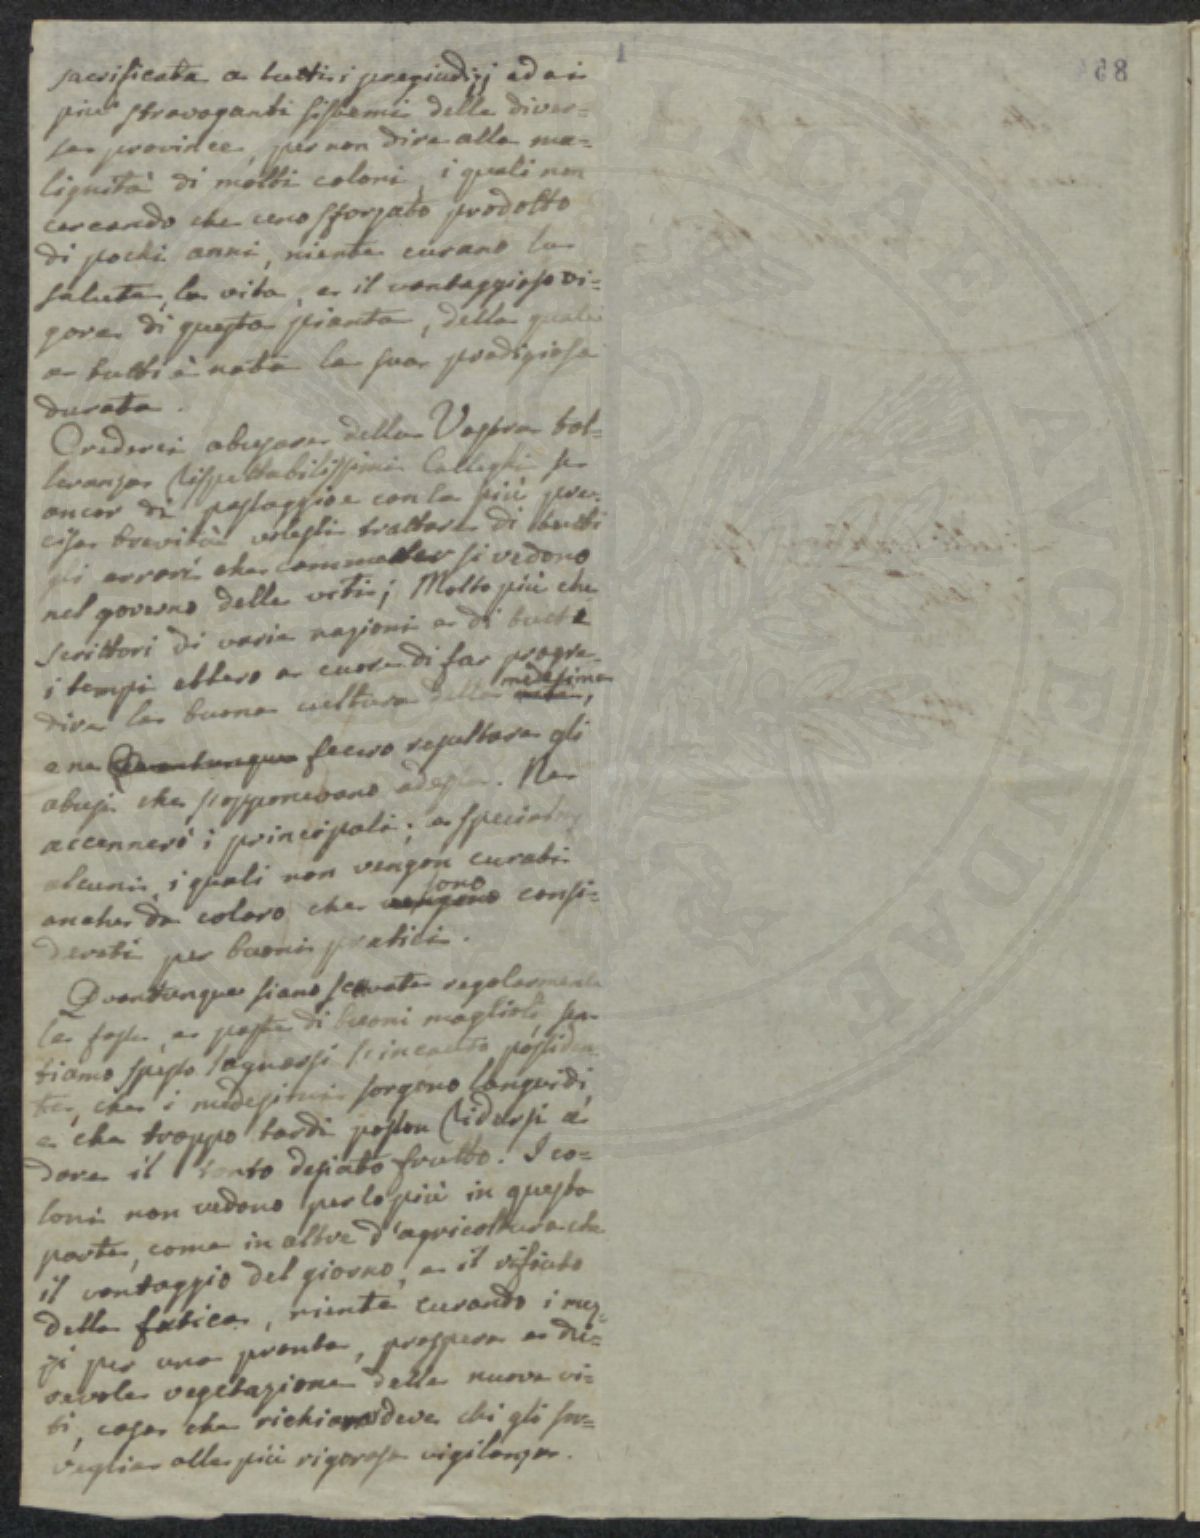 sacrificata a tutti i pregiudizj ed ai
più stravaganti sistemi delle diver=
se province, per non dire alla ma=
lignità di molti coloni, i quali non
cercando che uno sforzato prodotto
di pochi anni, niente curano la
salute, la vita, e il vantaggioso vi=
gore di questa pianta, della quale
a tutti è nota la sua prodigiosa
durata.
Crederei abusare della Vostra tol=
leranza Rispettabilissimi Colleghi se
ancor di passaggio e con la più pre=
cisa brevità volessi trattare di tutti
gli errori che commetter si vedono
nel governo delle viti; Molto più che
scrittori di varie nazioni e di tutti
i tempi ebbero a cuore di far progre=
dire la buona cultura della medesima,
e ne Quantunque fecero resultare gli
abusi che s'opponevano ad essa. Ne
accennerò i principali; e specialm
alcuni, i quali non vengon curati
anche da coloro che vengono sono consi=
derati per buoni pratici.
Quantunque siano scavate regolarmente
le fosse, e poste di buoni maglioli, sen
tiamo spesso lagnarsi l'incauto possiden
te, che i medesimi sorgono languidi,
e che troppo tardi posson ridursi a
dare il tanto desiato frutto. I co=
loni non vedono per lo più in questa
parte, come in altre d'agricoltura che
il vantaggio del giorno, e il rifiuto
della fatica, niente curando i mez=
zi per una pronta, prospera e du=
revole vegetazione delle nuove vi=
ti, cosa che richiamar deve chi gli sor=
veglia alla più rigorosa vigilanza.
AVGENDAE
68